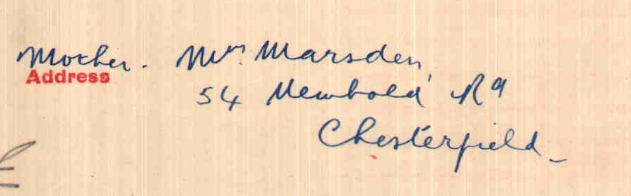 Mother. Mrs Marsden,
Address
54 Newbold Rd
Chesterfield.